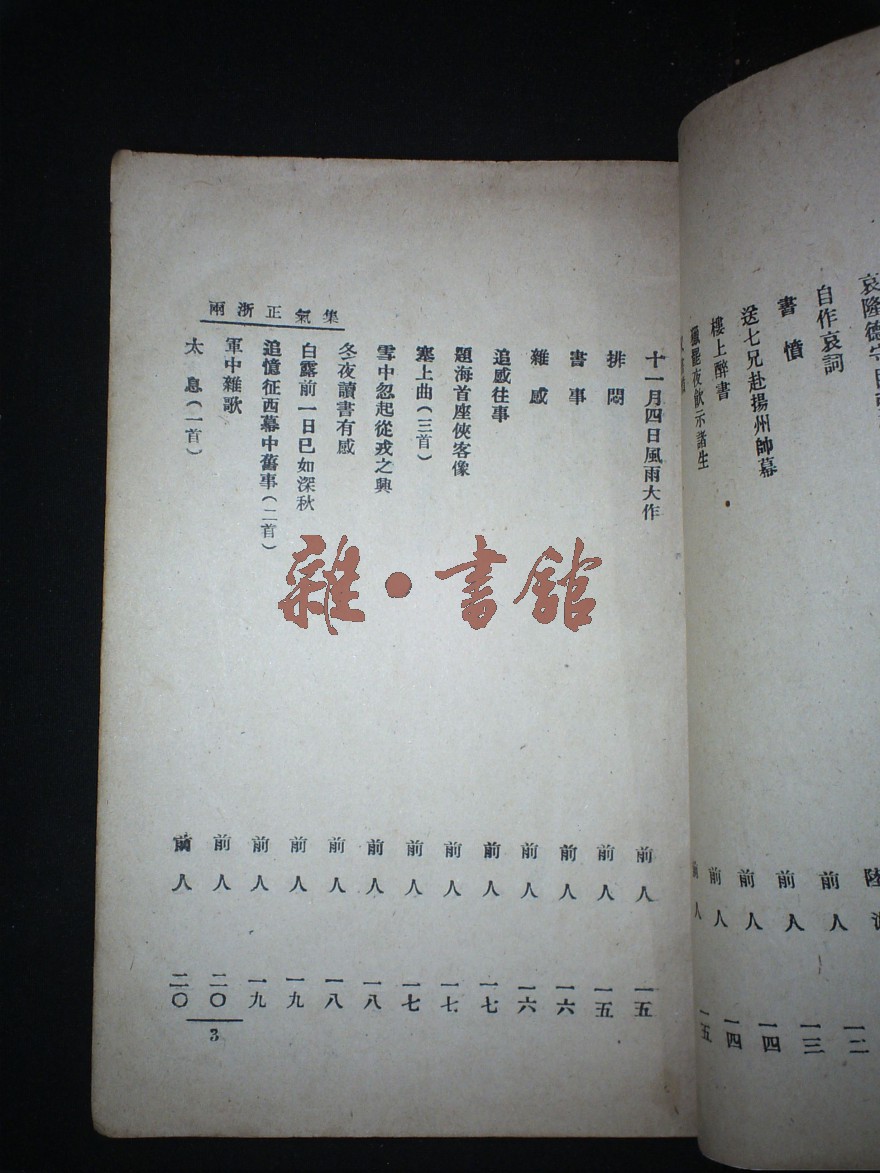 自作哀詞 前人 一三
書憤 前人 一三
送七兄赴揚州帥幕 前人 一四
樓上醉書 前人 一四
十一月四日風雨大作 前人 一五
排悶 前人 一五
書事 前人 一六
雜感 前人 一六
追感往事 前人 一七
題海首座俠客像 前人 一七
塞上曲(三首) 前人 一七
雪中忽起從戎之興 前人 一八
冬夜讀書有感 前人 一八
白露前一日已如深秋 前人 一九
追憶征西幕中舊事(二首) 前人 一九
軍中雜歌 前人 二〇
太息(一首) 前人 二〇
集氣正浙兩
3
雜·書館